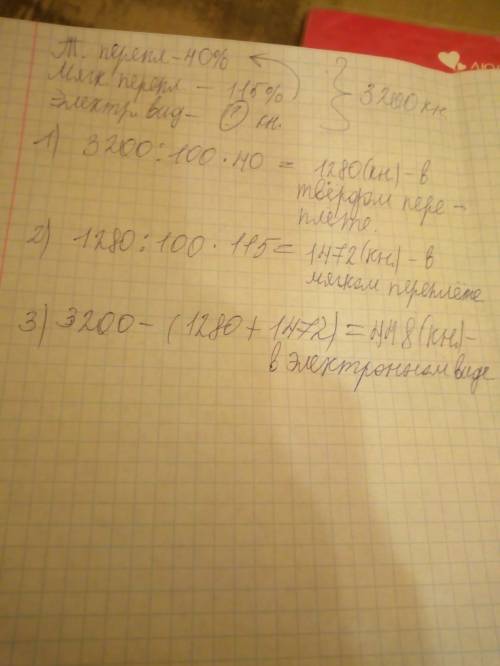 Т. перепл - 40%
Мягк перепл - 115%
Электр. вид - ? кн.
3200 кн.
1) 3200 : 100 · 40 = 1280 (кн.) - в
твёрдом пере-
плёте.
2) 1280 : 100 · 115 = 1472 (кн.) - в
мягком переплёте
3) 3200 - (1280 + 1472) = 448 (кн) -
в электронном виде